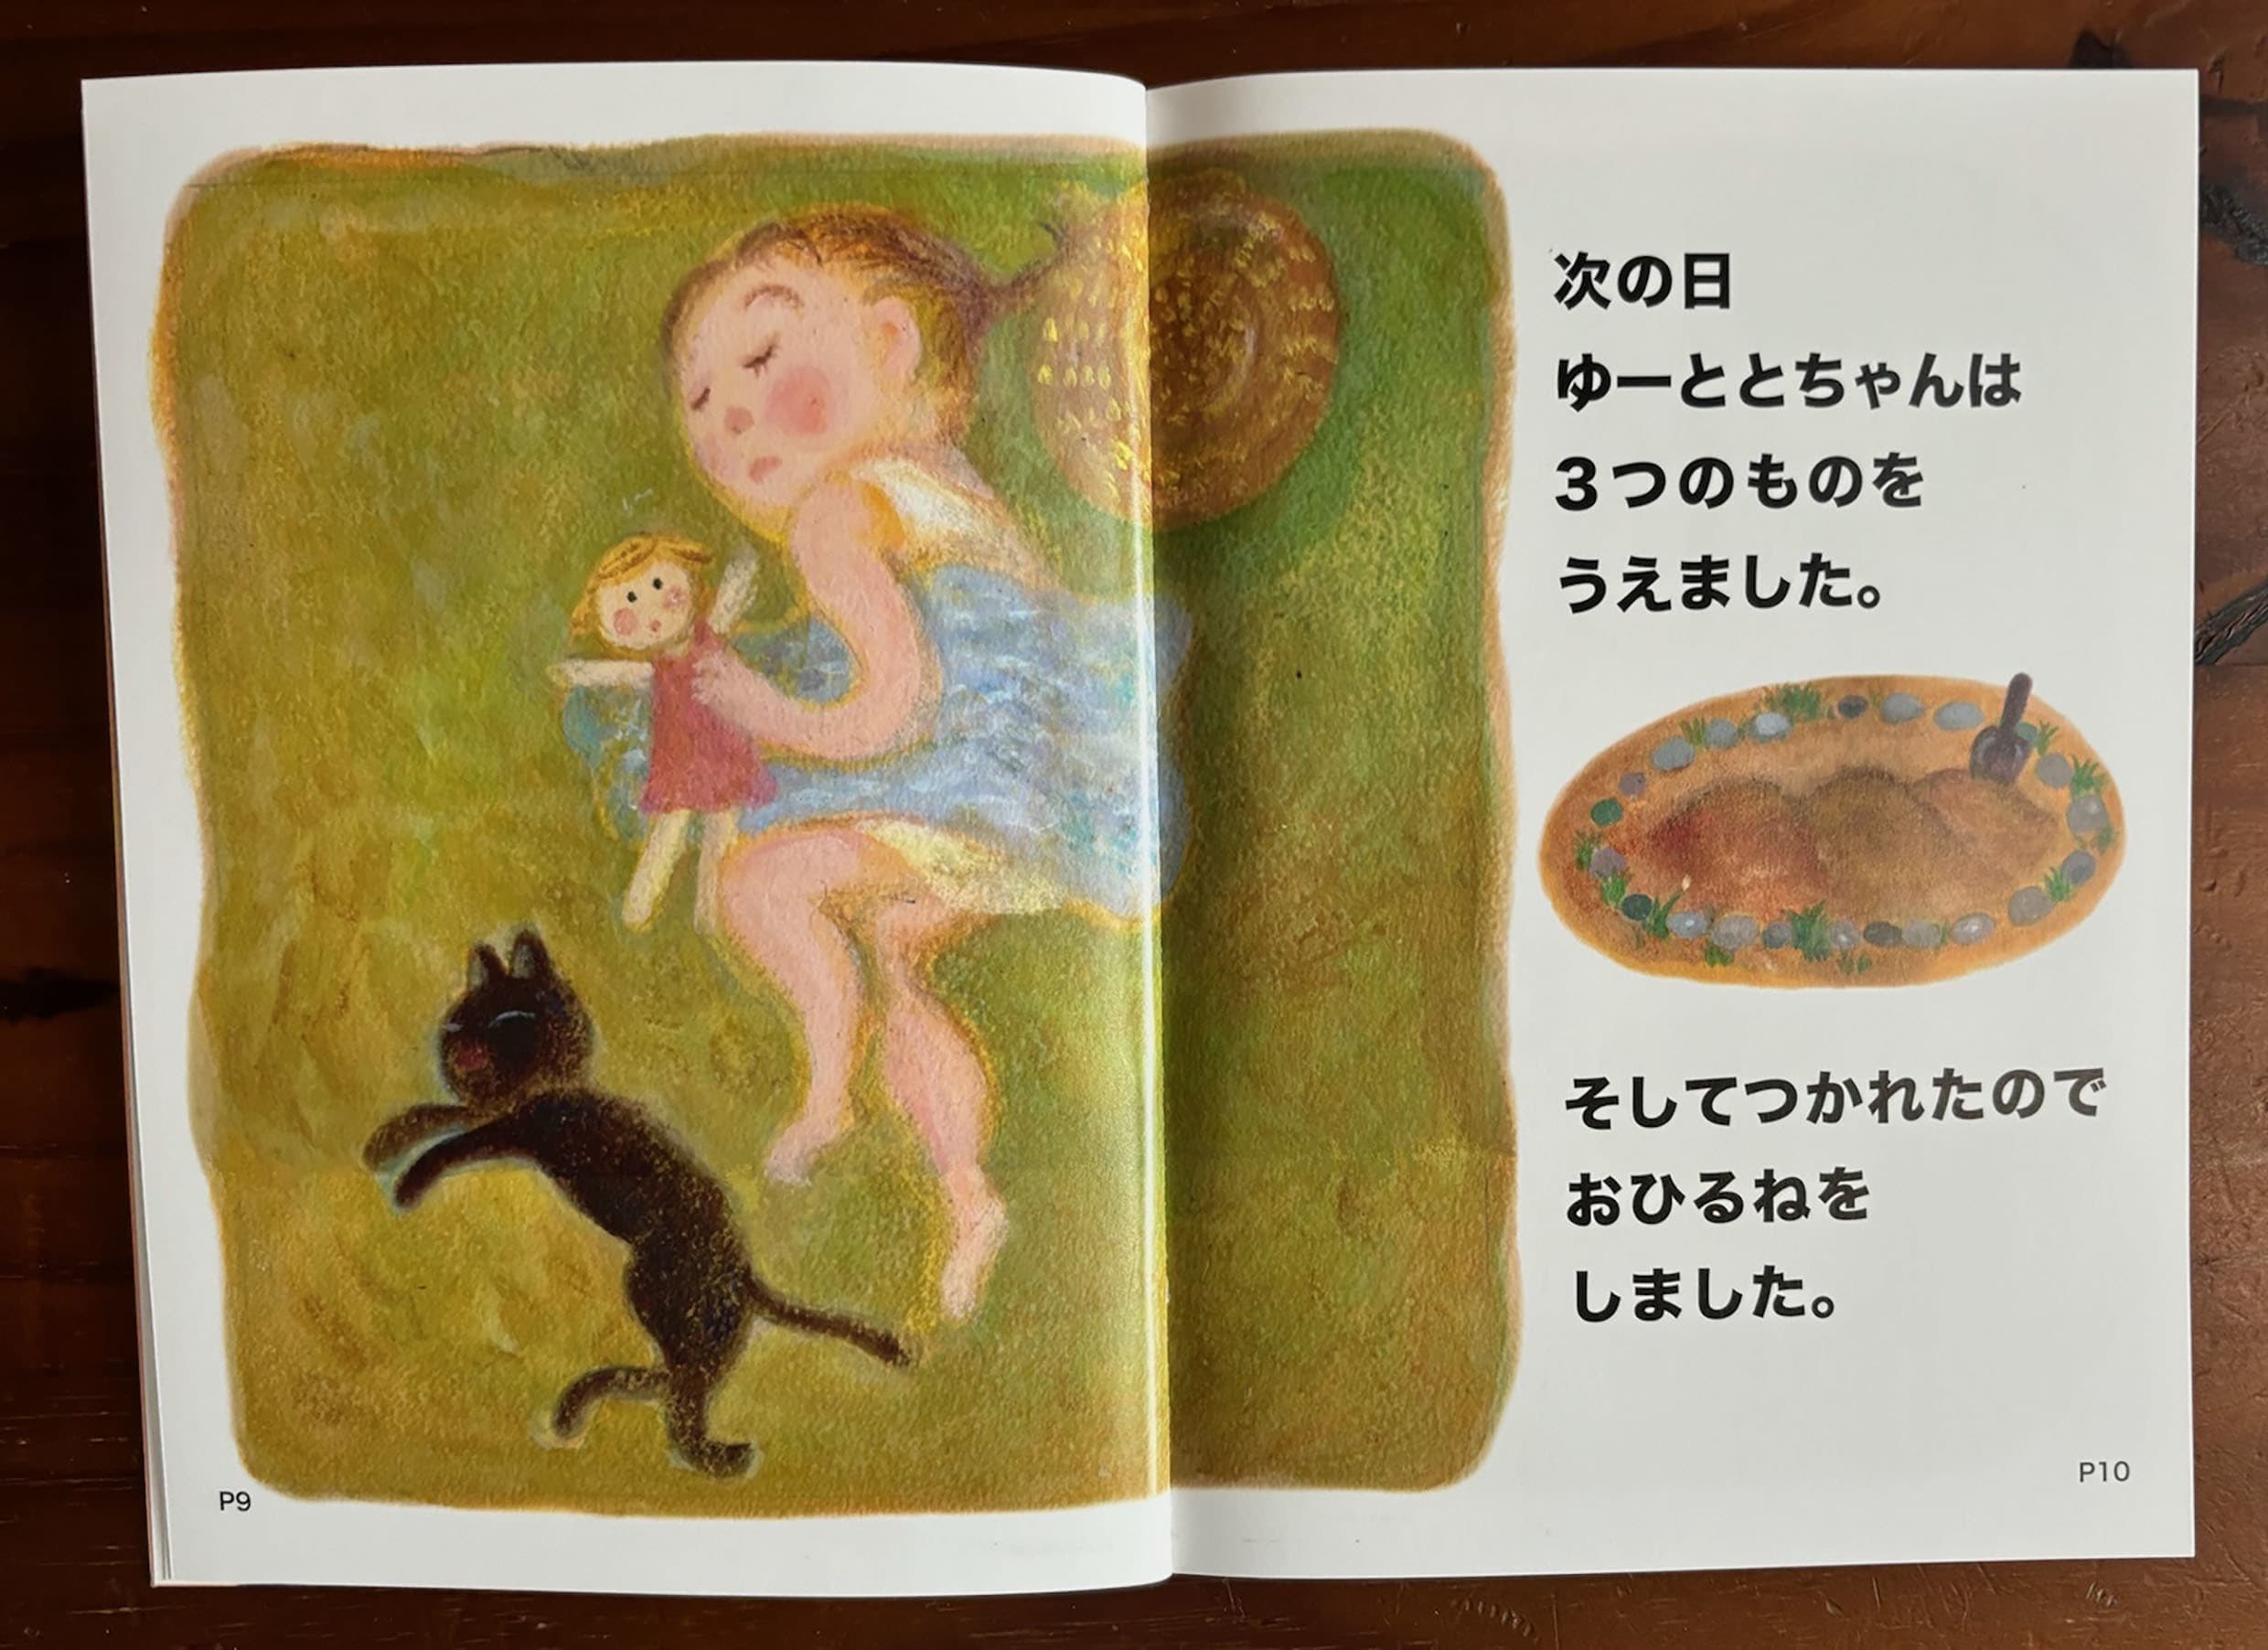 次の日
ゆーととちゃんは
３つのものを
うえました。
そしてつかれたので
おひるねを
しました。
P9
P10